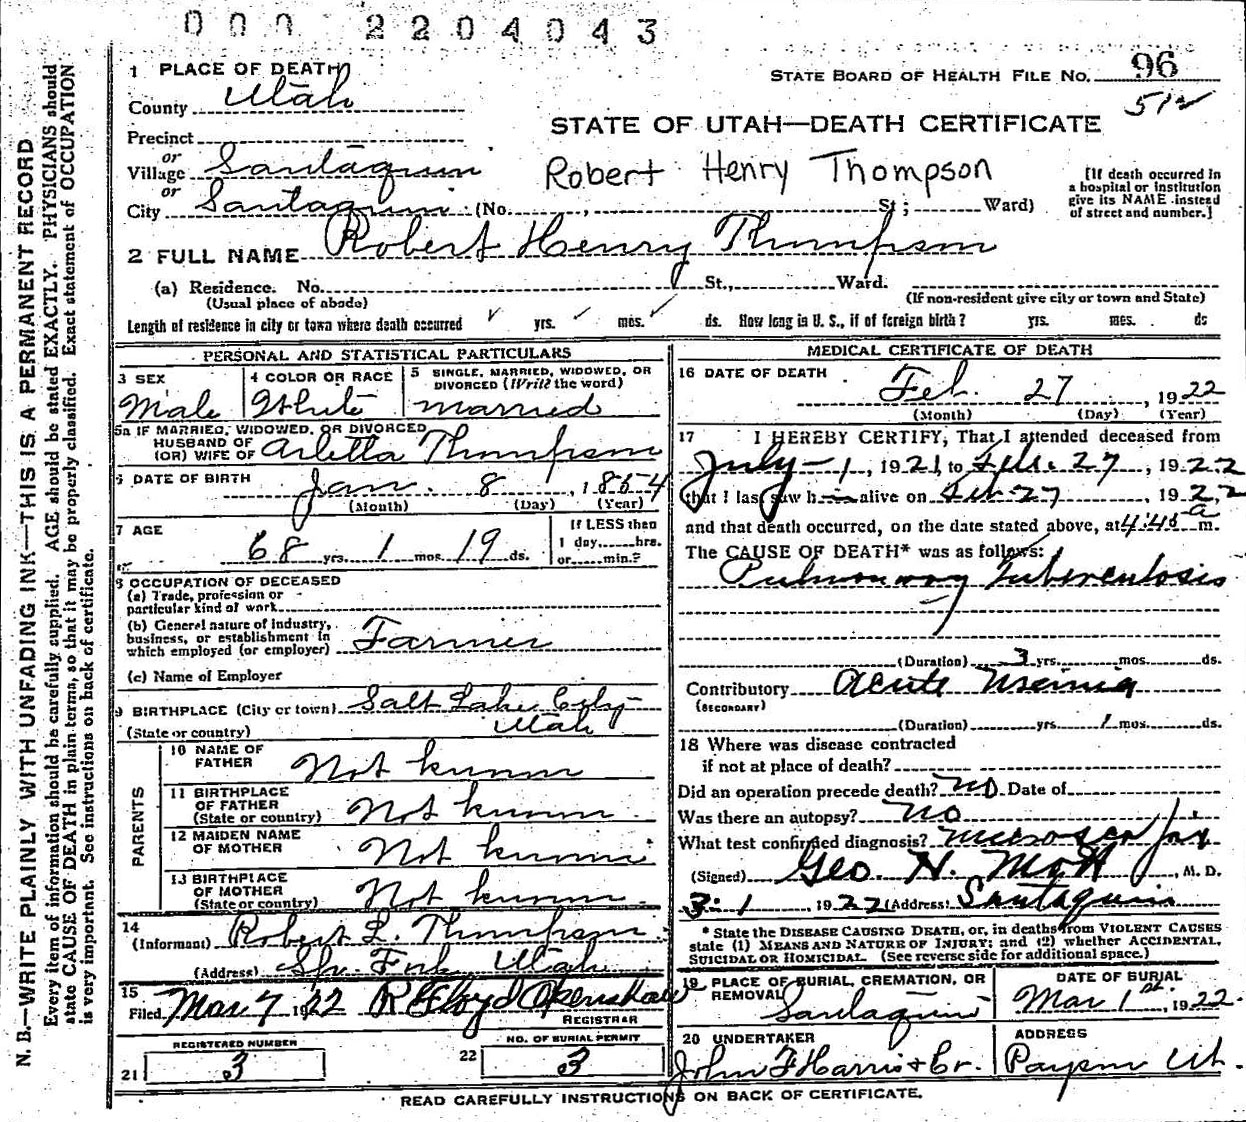 000 2204043
1 PLACE OF DEATH
County Utah
STATE BOARD OF HEALTH FILE No. 96
512
Precinct
STATE OF UTAH—DEATH CERTIFICATE
or
Village Santaquin
or
Robert Henry Thompson
[If death occurred in
a hospital or institution
give its NAME instead
of street and number.]
City Santaquin (No. , St; Ward)
2 FULL NAME Robert Henry Thompson
(a) Residence. No. St., Ward.
(Usual place of abode)
(If non-resident give city or town and State)
Length of residence in city or town where death occurred yrs. mos. ds. How long in U. S., if of foreign birth? yrs. mos. ds
PERSONAL AND STATISTICAL PARTICULARS
3 SEX
Male
4 COLOR OR RACE
White
5 SINGLE, MARRIED, WIDOWED, OR
DIVORCED (Write the word)
married
5a IF MARRIED, WIDOWED, OR DIVORCED
HUSBAND OF
(OR) WIFE OF Arletta Thompson
6 DATE OF BIRTH Jan. 8, 1854
(Month) (Day) (Year)
7 AGE
68 yrs. 1 mos. 19 ds.
If LESS then
1 day, hrs.
or min.?
8 OCCUPATION OF DECEASED
(a) Trade, profession or
particular kind of work
(b) General nature of industry,
business, or establishment in
which employed (or employer) Farmer
(c) Name of Employer
9 BIRTHPLACE (City or town) Salt Lake City
(State or country) Utah
PARENTS
10 NAME OF
FATHER Not known
11 BIRTHPLACE
OF FATHER
(State or country) Not known
12 MAIDEN NAME
OF MOTHER Not known
13 BIRTHPLACE
OF MOTHER
(State or country) Not known
14
(Informant) Robert L. Thompson
(Address) Sp. Fork Utah
15
Filed Mar 7 1922 R Floyd Openshaw
REGISTRAR
21 REGISTERED NUMBER
3
22 NO. OF BURIAL PERMIT
3
MEDICAL CERTIFICATE OF DEATH
16 DATE OF DEATH
Feb. 27, 1922
(Month) (Day) (Year)
17 I HEREBY CERTIFY, That I attended deceased from
July-1, 1921, to Feb. 27, 1922
that I last saw him alive on Feb-27, 1922,
and that death occurred, on the date stated above, at 4:45 a m.
The CAUSE OF DEATH* was as follows:
Pulmonary Tuberculosis
(Duration) 3 yrs. mos. ds.
Contributory Acute
(SECONDARY)
(Duration) yrs. 1 mos. ds.
18 Where was disease contracted
if not at place of death?
Did an operation precede death? No Date of
Was there an autopsy? No
What test confirmed diagnosis?
(Signed) Geo. H. Mott, M. D.
3-1, 1922 (Address) Santaquin
* State the DISEASE CAUSING DEATH, or, in deaths from VIOLENT CAUSES
state (1) MEANS AND NATURE OF INJURY; and (2) whether ACCIDENTAL,
SUICIDAL OR HOMICIDAL. (See reverse side for additional space.)
19 PLACE OF BURIAL, CREMATION, OR
REMOVAL Santaquin
DATE OF BURIAL
Mar 1st, 1922.
20 UNDERTAKER
John F Harris + Co.
ADDRESS
Payson Ut.
READ CAREFULLY INSTRUCTIONS ON BACK OF CERTIFICATE.
N. B.—WRITE PLAINLY WITH UNFADING INK—THIS IS A PERMANENT RECORD
Every item of information should be carefully supplied. AGE should be stated EXACTLY. PHYSICIANS should
state CAUSE OF DEATH in plain terms, so that it may be properly classified. Exact statement of OCCUPATION
is very important. See instructions on back of certificate.